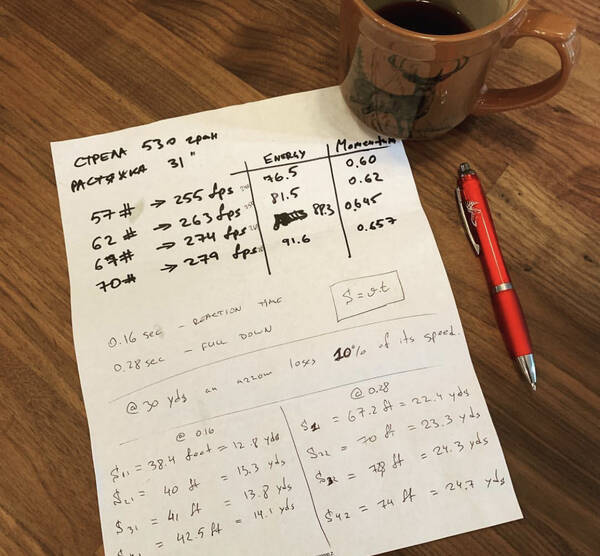 СТРЕЛА 530 гран
РАСТЯЖКА 31"
ENERGY Momentum
57# → 255 fps 76.5 0.60
62# → 263 fps 81.5 0.62
67# → 274 fps 88.3 0.645
70# → 279 fps 91.6 0.657
0.16 sec - REACTION TIME
S = v.t
0.28 sec - FULL DOWN
@ 30 yds an arrow loses 10% of its speed.
@ 0.16
S11 = 38.4 feet = 12.8 yds
S21 = 40 ft = 13.3 yds
S31 = 41 ft = 13.8 yds
= 42.5 ft = 14.1 yds
@ 0.28
= 67.2 ft = 22.4 yds
S22 = 70 ft = 23.3 yds
= ft = 24.3 yds
S42 = 74 ft = 24.7 yds